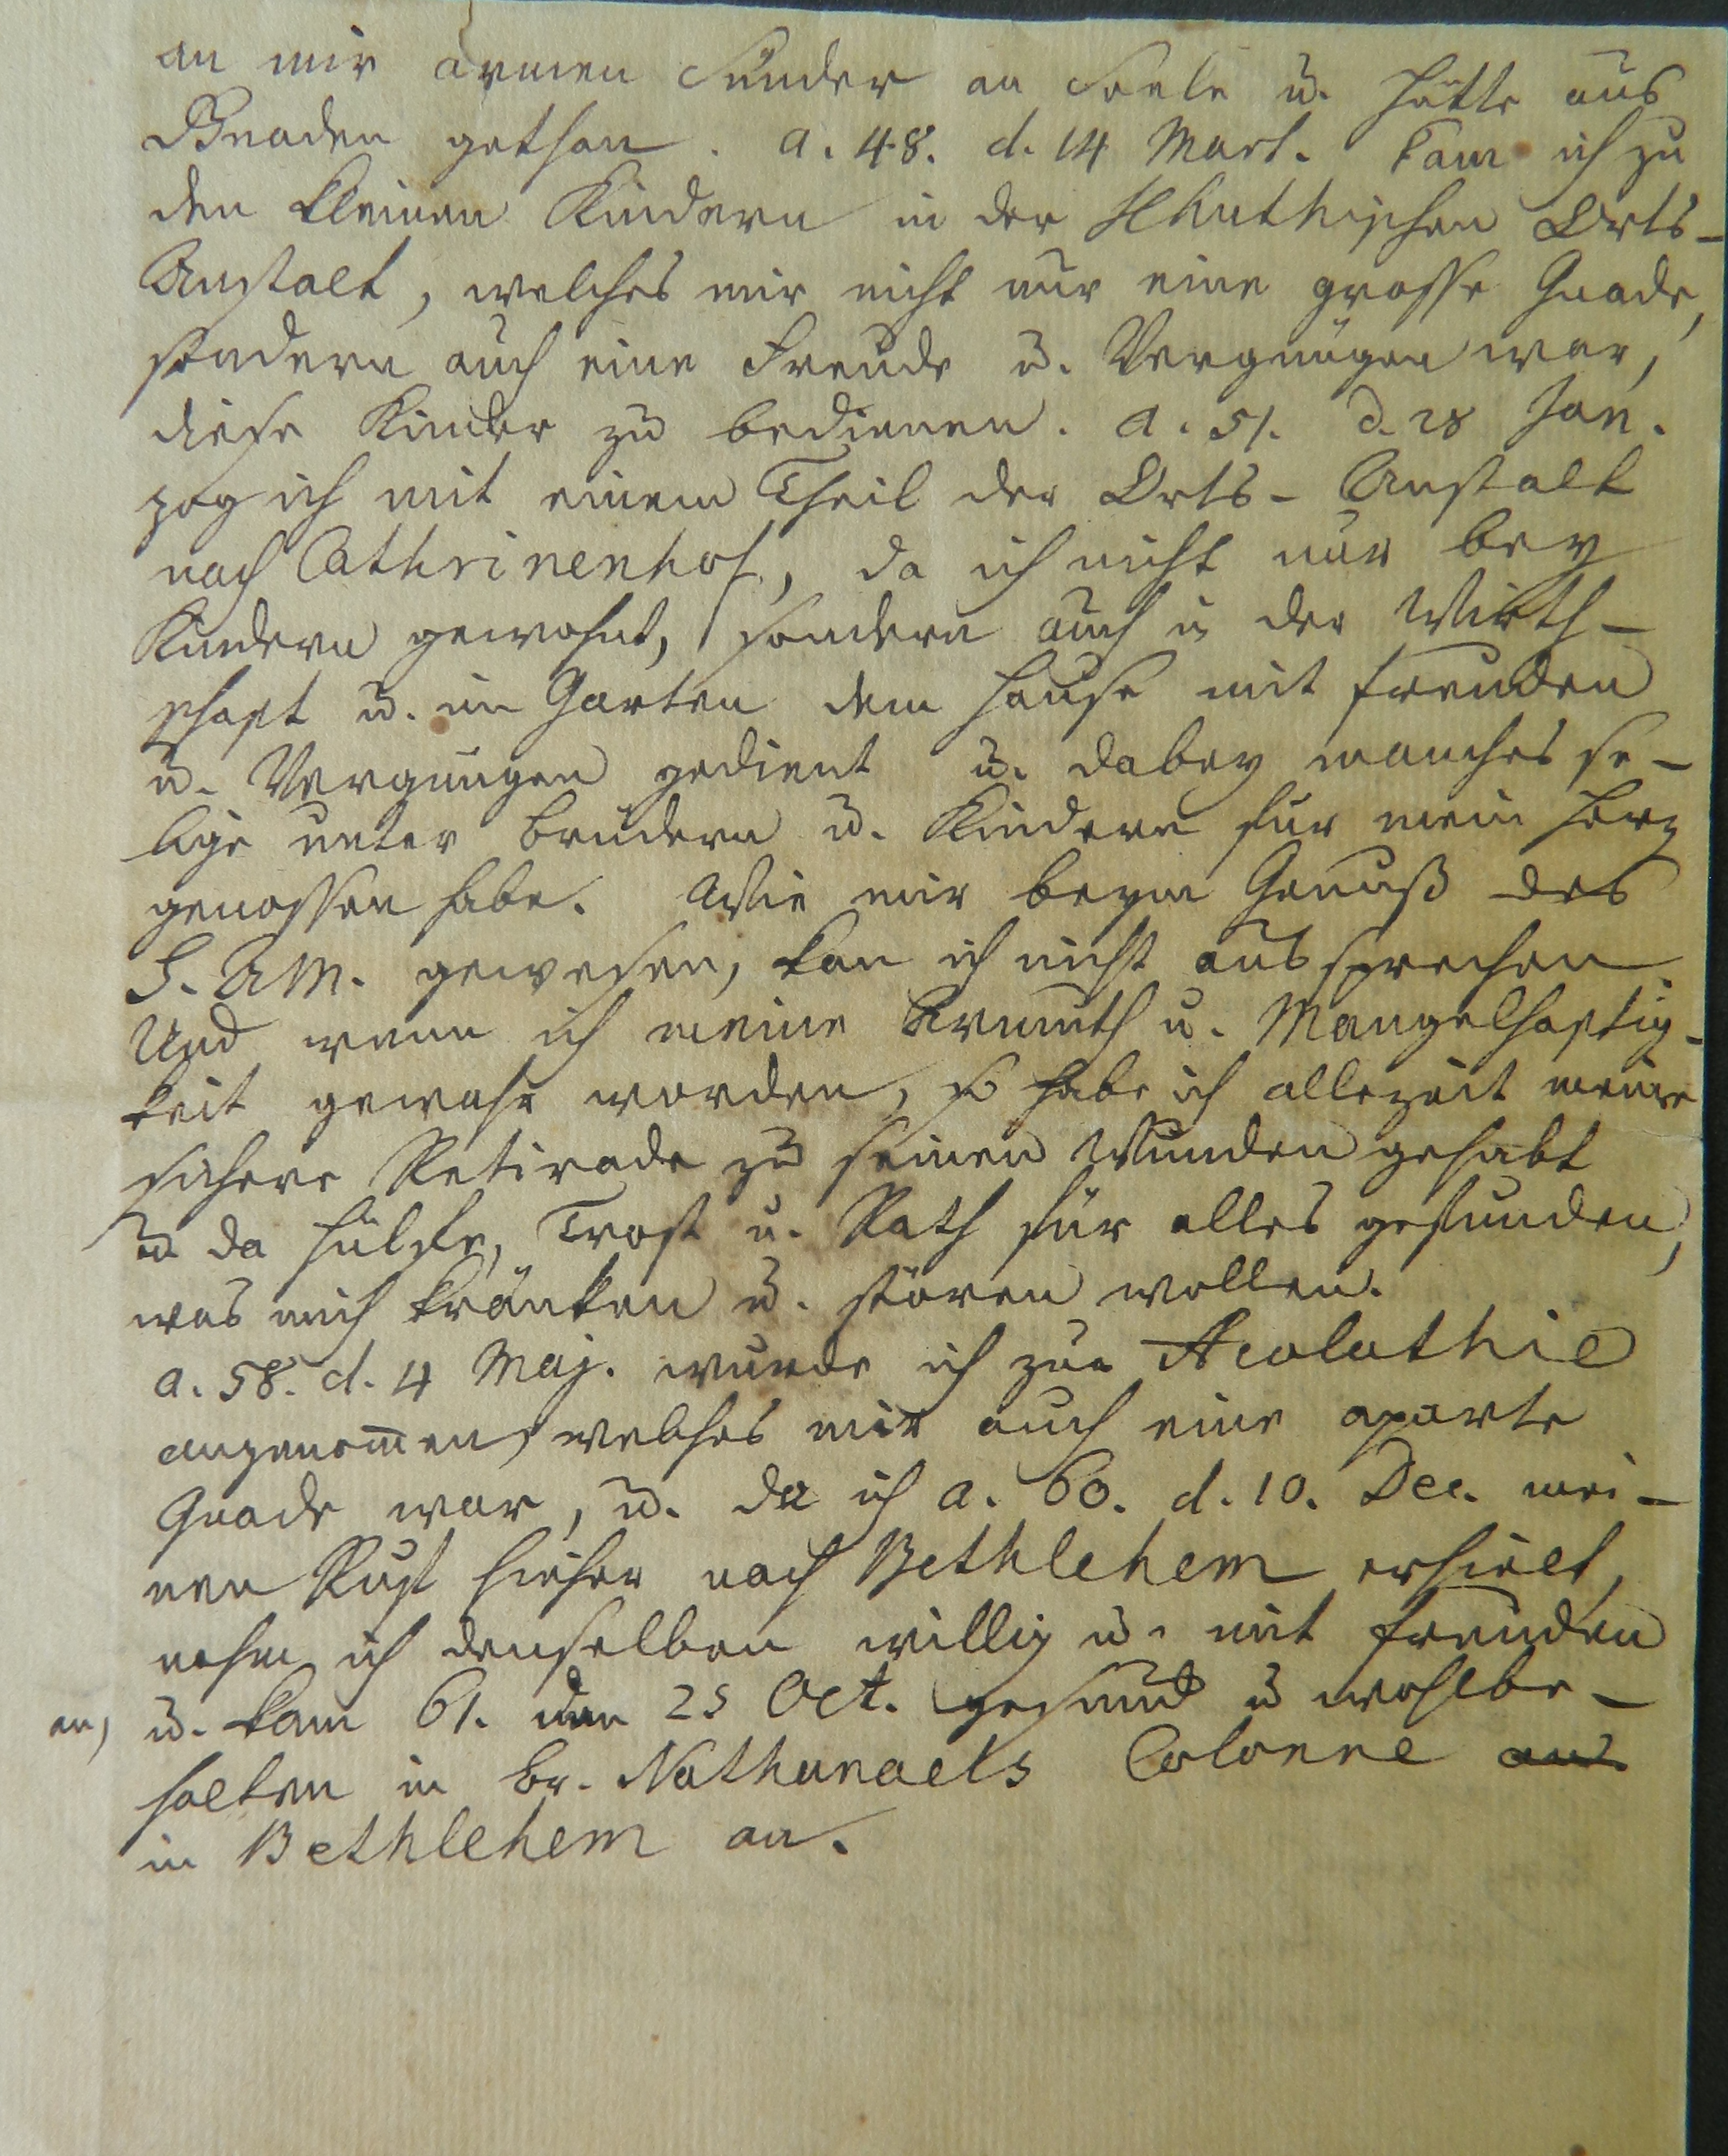 an mir armen Sünder an Seele u. Hütte aus
Gnaden gethan. a. 48. d. 14 Mart. kam ich zu
den kleinen Kindern in der Hhuthischen Orts-
Anstalt, welches mir nicht nur eine grosse Gnade,
sondern auch eine Freude u. Vergnügen war,
diese Kinder zu bedienen. a. 51. d. 28 Jan.
zog ich mit einem Theil der Orts-Anstalt
nach Cathrinenhof, da ich nicht nur bey
Kindern gewohnt, sondern auch in der Wirth-
schaft u. im Garten dem Hause mit Freuden
u. Vergnügen gedient u. dabey manches se-
lige unter Brüdern u. Kindern für mein Herz
genossen habe. Wie mir beym Genuß des
H. AM. gewesen, kan ich nicht aussprechen.
Und wenn ich meine Armuth u. Mangelhaftig-
keit gewahr worden, so habe ich allezeit meine
sichere Retirade zu seinen Wunden gehabt
u. da Hülfe, Trost u. Rath für alles gefunden,
was mich kränken u. stören wollen.
a. 58. d. 4 Maj. wurde ich zur Acoluthie
angenommen, welches mir auch eine aparte
Gnade war, u. da ich a. 60. d. 10. Dec. mei-
nen Ruf hieher nach Bethlehem erhielt,
nahm ich denselben willig u. mit Freuden
an, u. kam 61. den 25 Oct. gesund u wohlbe-
halten in Br. Nathanaels Colonne an
in Bethlehem an.